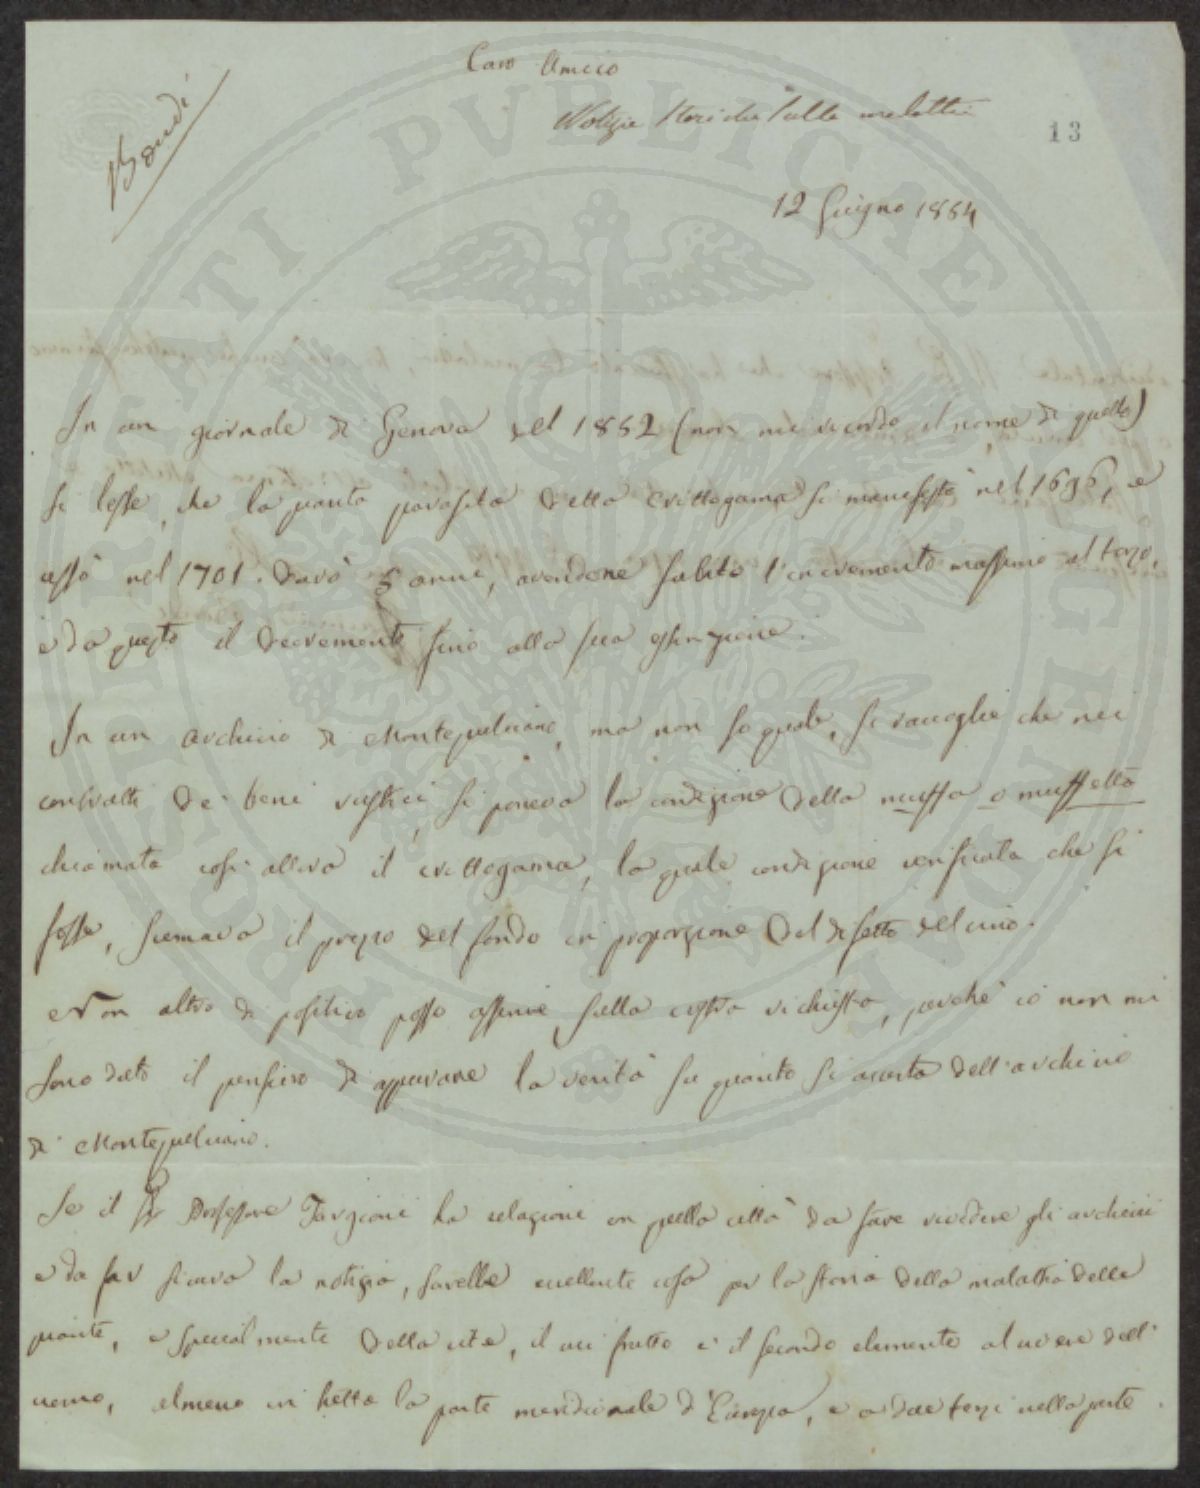 Caro Amico
Notizie storiche sulla malattia
13
Bondi
12 Giugno 1854
In un giornale di Genova del 1852 (non mi ricordo il nome di quello)
si lesse, che la pianta parasita detta Crittogama si manifestò nel 1696, e
cessò nel 1701. Durò 5 anni, avendone subito l'incremento massimo al terzo,
e da questo il decremento fino alla sua estinzione.
In un archivio di Montepulciano, ma non so quale, si raccoglie che nei
contratti de' beni rustici, si poneva la condizione della muffa o muffetta
chiamata così allora il crittogama, la quale condizione verificata che si
fosse, scemava il prezzo del fondo in proporzione del difetto del vino.
Non altro di positivo posso asserire sulla vostra richiesta, perchè io non mi
sono dato il pensiero di appurare la verità su quanto si accerta dell'archivio
di Montepulciano.
Se il Sr Professore Targioni ha relazione in quella città da fare rivedere gli archivii
e da far sicura la notizia, sarebbe eccellente cosa per la storia della malattia delle
piante, e specialmente della vite, il cui frutto è il secondo elemento al vivere dell'
uomo, almeno in tutta la parte meridionale d'Europa, e a due terzi nella parte
PIETATI PVBLICAE